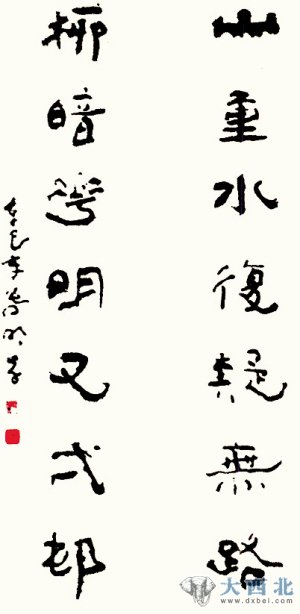 山重水復疑無路
柳暗花明又弌邨
大西北
www.dxbei.com